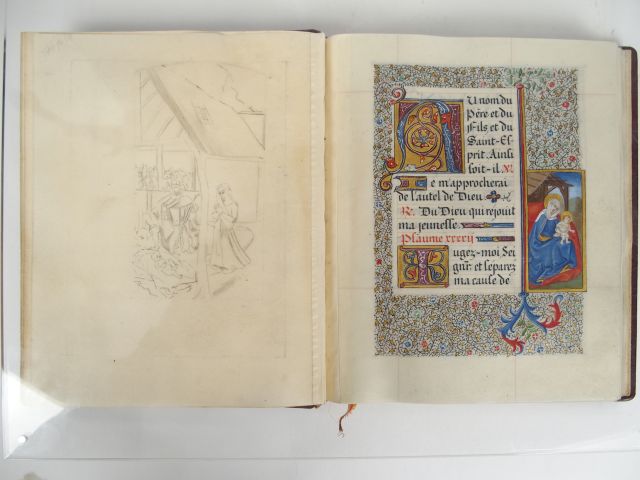 Au nom du
Père et du
Fils et du
Saint-Es
prit. Ainsi
soit-il. ℣.
Je m'approcherai
de l'autel de Dieu
℟. Du Dieu qui rejouit
ma jeunesse.
Psaume xxxxij
Jugez-moi Sei
gnr. et separez
ma cause de